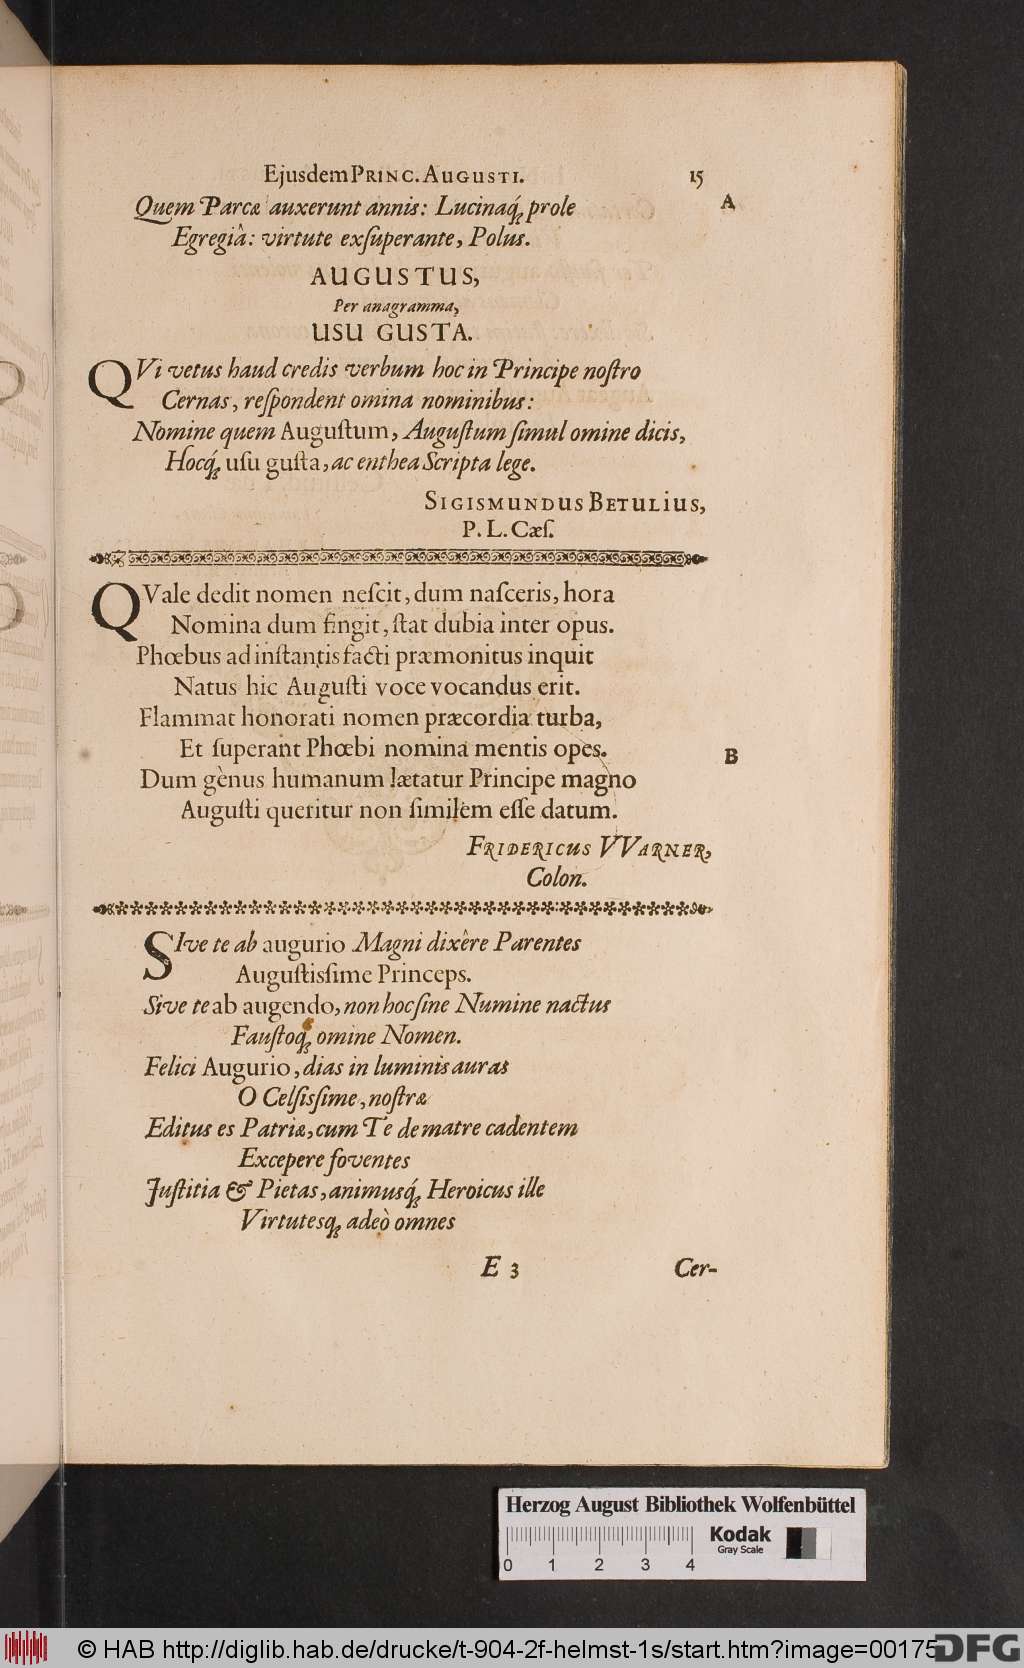 Ejusdem PRINC. AUGUSTI. 15
Quem Parcæ auxerunt annis: Lucinaq́; prole A
Egregiâ: virtute exſuperante, Polus.
AUGUSTUS,
Per anagramma,
USU GUSTA.
QVi vetus haud credis verbum hoc in Principe noſtro
Cernas, reſpondent omina nominibus:
Nomine quem Auguſtum, Auguſtum ſimul omine dicis,
Hocq́; uſu guſta, ac enthea Scripta lege.
SIGISMUNDUS BETULIUS,
P. L. Cæſ.
QVale dedit nomen neſcit, dum naſceris, hora
Nomina dum fingit, ſtat dubia inter opus.
Phœbus ad inſtantis facti præmonitus inquit
Natus hic Auguſti voce vocandus erit.
Flammat honorati nomen præcordia turba,
Et ſuperant Phœbi nomina mentis opes.
B
Dum gènus humanum lætatur Principe magno
Auguſti queritur non ſimilem eſſe datum.
FRIDERICUS VVARNER,
Colon.
SIve te ab augurio Magni dixêre Parentes
Auguſtiſsime Princeps.
Sive te ab augendo, non hoc ſine Numine nactus
Fauſtoq́; omine Nomen.
Felici Augurio, dias in luminis auras
O Celſiſsime, noſtræ
Editus es Patriæ, cum Te de matre cadentem
Excepere foventes
Juſtitia & Pietas, animusq́; Heroicus ille
Virtutesq; adeò omnes
E 3 Cer-
Herzog August Bibliothek Wolfenbüttel
Kodak
Gray Scale
0 1 2 3 4
© HAB http://diglib.hab.de/drucke/t-904-2f-helmst-1s/start.htm?image=00175
DFG